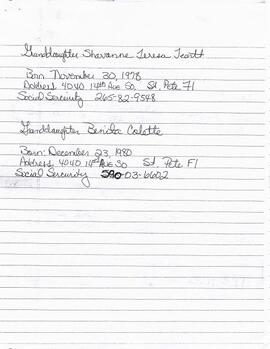 Granddaughter Teresa
Born November 30, 1978
Address 4040 14th Ave So. St. Pete Fl
Social Sercuity 265-82-9548
Granddaughter
Born: December 23, 1980
Address 4040 14th Ave So St. Pete Fl
Social Sercurity 590-03-6602